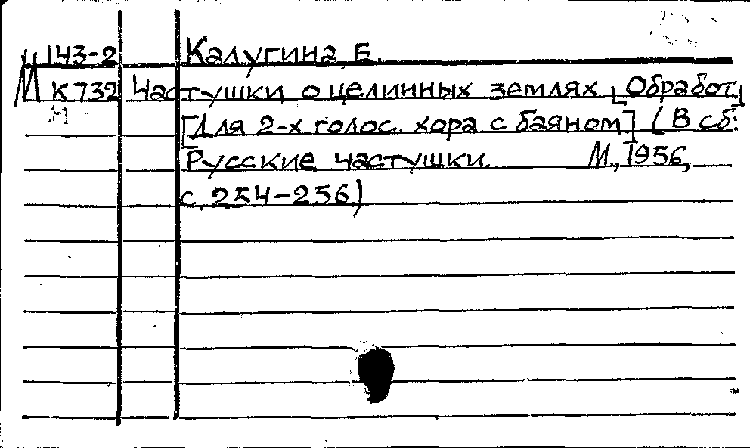 Ц143-2 Калугина, Е.
М К732 Частушки о целинных землях [Обработ.]
М [Для 2-х голос. хора с баяном] (В сб:
Русские частушки. М., 1956,
с. 254-256)